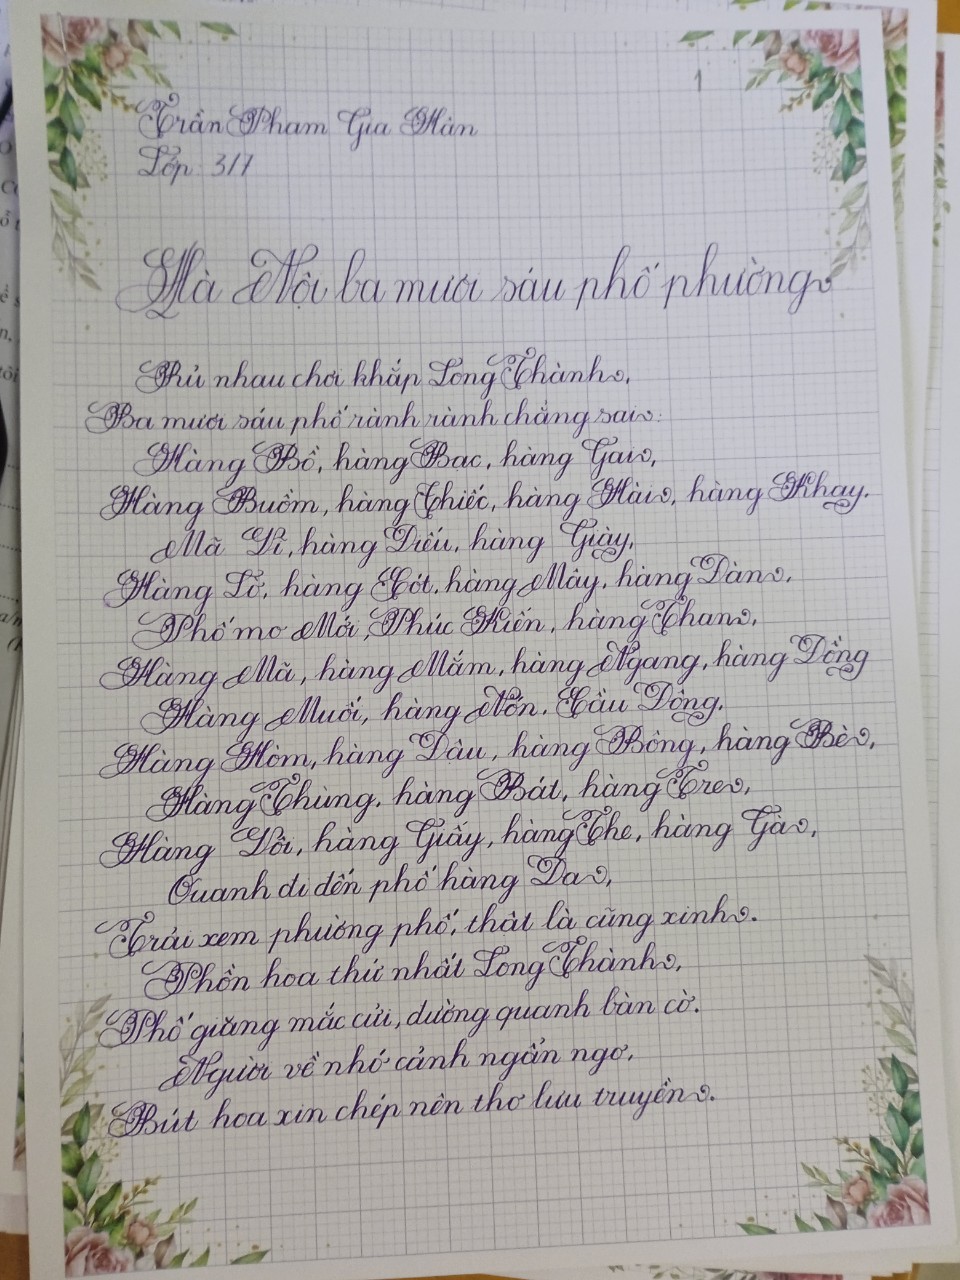 1
Trần Phạm Gia Hân
Lớp: 3/7
Hà Nội ba mươi sáu phố phường
Rủ nhau chơi khắp Long Thành,
Ba mươi sáu phố rành rành chẳng sai:
Hàng Bồ, hàng Bạc, hàng Gai,
Hàng Buồm, hàng Thiếc, hàng Hài, hàng Khay.
Mã Vĩ, hàng Điếu, hàng Giày,
Hàng Lờ, hàng Cót, hàng Mây, hàng Đàn,
Phố mơ Mới, Phúc Kiến, hàng Than,
Hàng Mã, hàng Mắm, hàng Ngang, hàng Đồng
Hàng Muối, hàng Nón, Cầu Đông,
Hàng Hòm, hàng Đậu, hàng Bông, hàng Bè,
Hàng Thùng, hàng Bát, hàng Tre,
Hàng Vôi, hàng Giấy, hàng The, hàng Gà,
Quanh đi đến phố hàng Da,
Trải xem phường phố, thật là cũng xinh.
Phồn hoa thứ nhất Long Thành,
Phố giăng mắc cửi, đường quanh bàn cờ.
Người về nhớ cảnh ngẩn ngơ,
Bút hoa xin chép nên thơ lưu truyền.